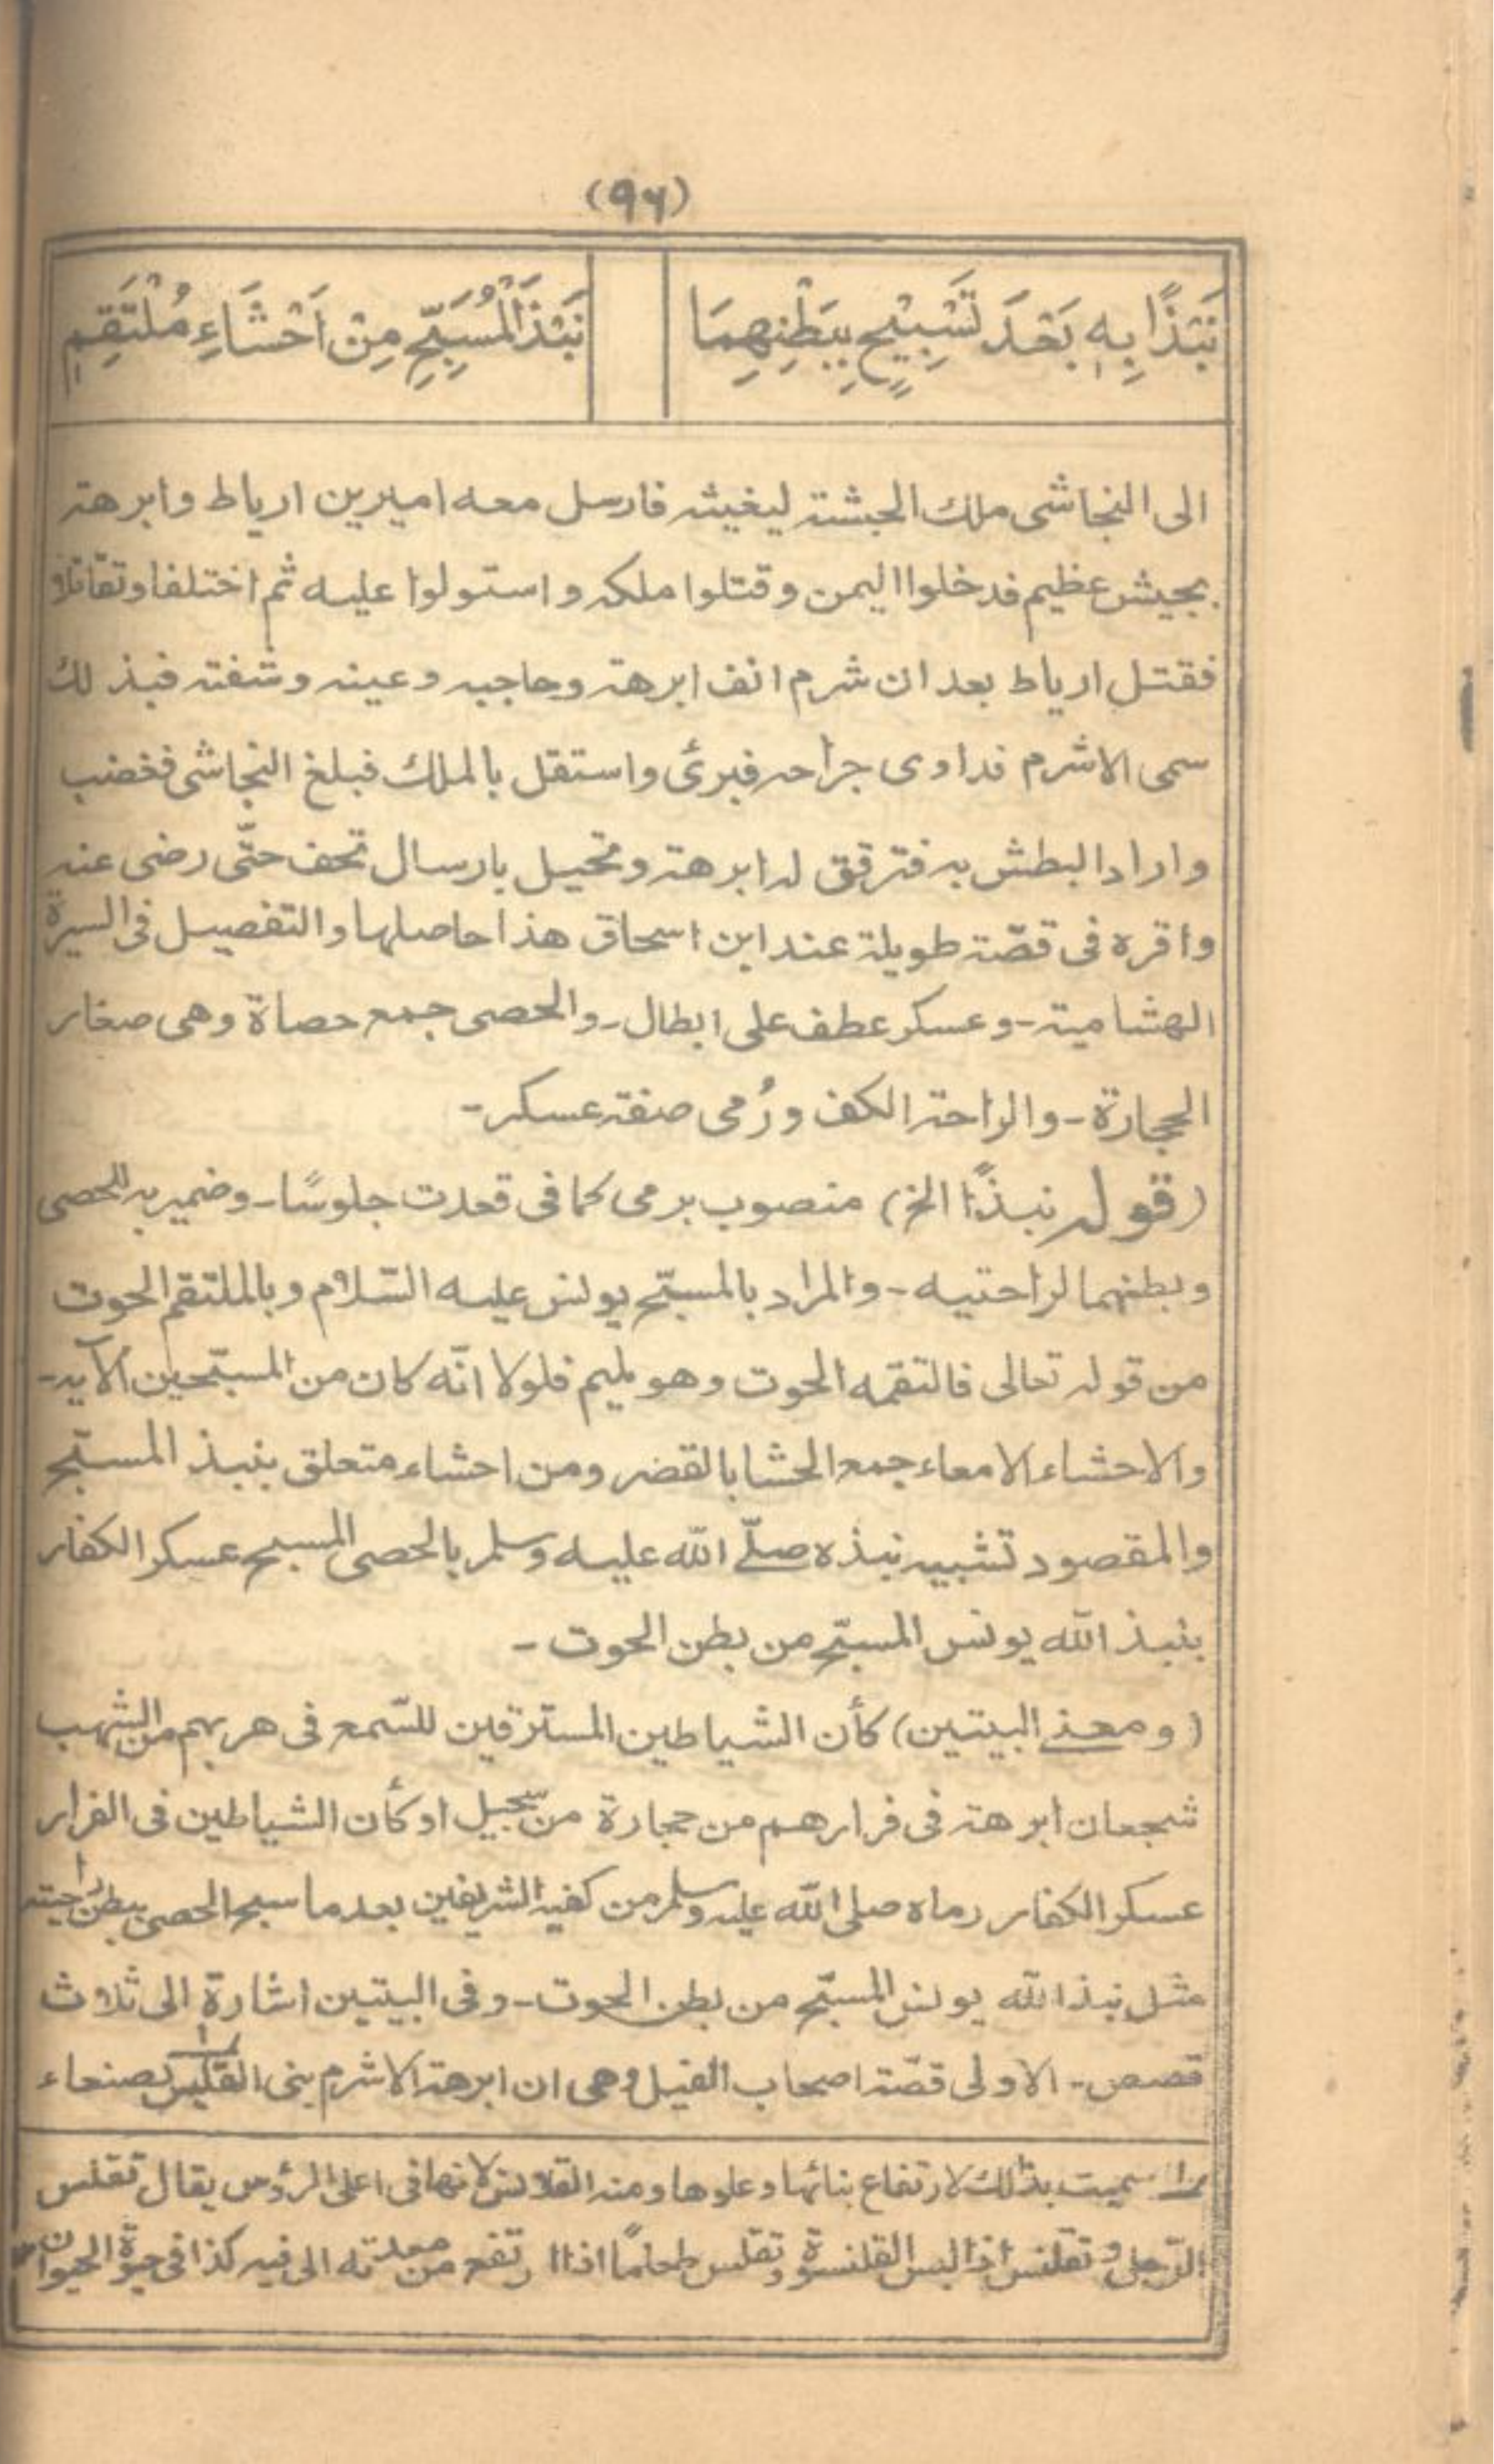 (۹۶)
نَبْذًا بِهٖ بَعْدَ تَسْبِيْحٍ بِبَطْنِهِمَا نَبْذَ الْمُسَبِّحِ مِنْ اَحْشَاءِ مُلْتَقِمٖ
الى النجاشى ملك الحبشة ليغيثه فارسل معه اميرين ارياط وابرهة
بجيش عظيم فدخلوا اليمن وقتلوا ملكه واستولوا عليه ثم اختلفا وتقاتلا
فقتل ارياط بعد ان شرم انف ابرهة وحاجبه وعينه وشفته فبذلك
سمى الاشرم فداوى جراحه فبرئ واستقل بالملك فبلغ النجاشى فغضب
واراد البطش به فترقق له ابرهة وتحيل بارسال تحف حتّى رضى عنه
واقره فى قصّة طويلة عند ابن اسحاق هذا حاصلها والتفصيل فى السيرة
الهشامية - وعسكر عطف على ابطال - والحصى جمع حصاة وهى صغار
الحجارة - والراحة الكف ورُمى صفة عسكر -
(قوله نبذًا الخ) منصوب برمى كما فى قعدت جلوسًا - وضمير به للحصى
وبطنهما لراحتيه - والمراد بالمسبّح يونس عليه السّلام وبالملتقم الحوت
من قوله تعالى فالتقمه الحوت وهو مليم فلولا انّه كان من المسبّحين الآية -
والاحشاء الامعاء جمع الحشا بالقصر ومن احشاء متعلق بنبذ المسبّح
والمقصود تشبيه نبذه صلّے الله عليه وسلم بالحصى المسبح عسكر الكفار
بنبذ الله يونس المسبّح من بطن الحوت -
(ومعنے البيتين) كأن الشياطين المسترقين للسّمع فى هربهم من الشهب
شجعان ابرهة فى فرارهم من حجارة من سجّيل او كأن الشياطين فى الفرار
عسكر الكفار رماه صلى الله عليه وسلم من كفيه الشريفين بعد ما سبح الحصى ببطن راحيته
مثل نبذ الله يونس المسبّح من بطن الحوت - وفى البيتين اشارة الى ثلاث
قصص - الاولى قصّة اصحاب الفيل وهى ان ابرهة الاشرم بنى القليس ١ بصنعاء
١ سميت بذلك لارتفاع بنائها وعلوها ومنه القلانس لانها فى اعلى الرؤس يقال تقلس
الرّجل وتقلنس اذا لبس القلنسوة وتقلس طعامًا اذا ارتفع من معدته الى فيه كذا فى حيوٰة الحيوان